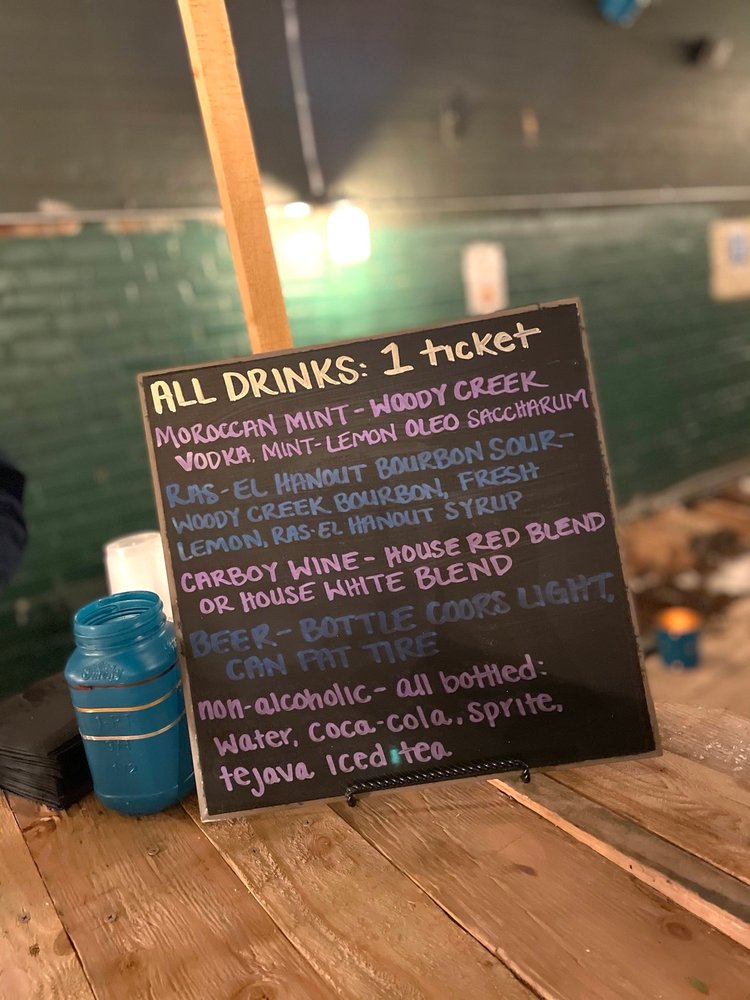 ALL DRINKS: 1 ticket
MOROCCAN MINT - WOODY CREEK
VODKA, MINT-LEMON OLEO SACCHARUM
RAS-EL HANOUT BOURBON SOUR-
WOODY CREEK BOURBON, FRESH
LEMON, RAS-EL HANOUT SYRUP
CARBOY WINE - HOUSE RED BLEND
OR HOUSE WHITE BLEND
BEER - BOTTLE COORS LIGHT,
CAN FAT TIRE
non-alcoholic - all bottled:
water, coca-cola, sprite,
tejava Iced tea